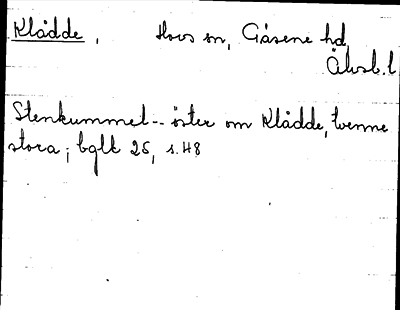 Klådde, Hovs sn, Gäsene hd,
Älvsb. l.
Stenkummel -- öster om Klådde, tvenne
stora; bglt 25, s. 48